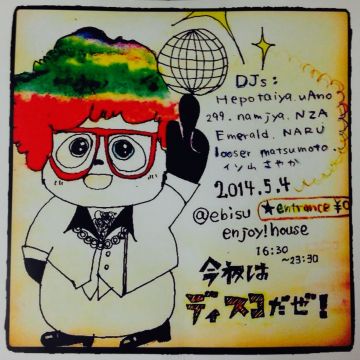 DJs:
Hepotaiya. uAno
299. namjya. NZA
Emerald. NARU
looser matsumoto.
イソ山さやか
2014.5.4
@ebisu ★entrance ¥0
enjoy!house
16:30
~23:30
今夜は
ディスコだぜ!